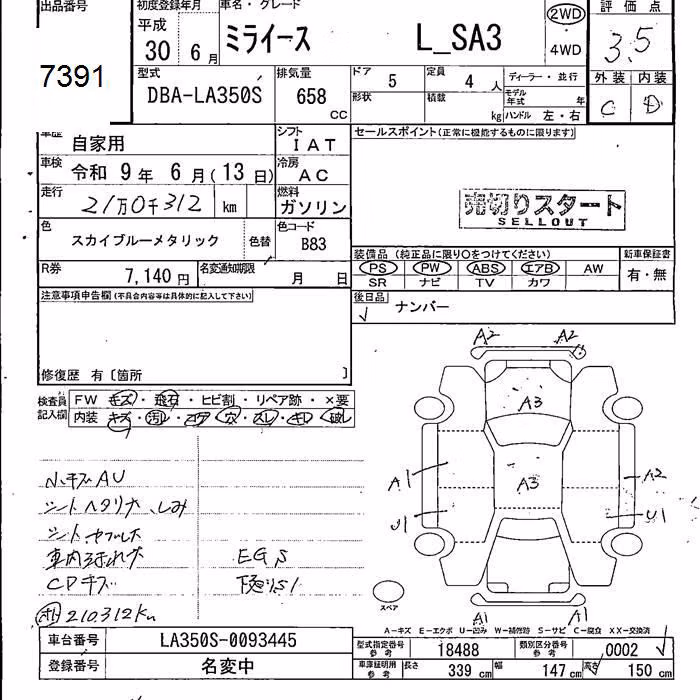 出品番号
7391
初度登録年月
平成
30 6月
車名・グレード
ミライース L_SA3
2WD
4WD
評価点
3.5
外装 内装
C D
型式
DBA-LA350S
排気量
658 CC
ドア 5
定員 4 人
形状
積載 kg
ディーラー・並行
モデル年式 年
ハンドル 左・右
車歴 自家用
シフト IAT
車検 令和 9年 6月(13日)
冷房 AC
走行 21万0千312 km
燃料 ガソリン
色 スカイブルーメタリック 色替
色コード B83
R券 7,140円
名変通知期限 月 日
セールスポイント(正常に機能するものに限ります)
売切りスタート
SELLOUT
装備品 (純正品に限り○をつけてください)
PS PW ABS エアB AW
SR ナビ TV カワ
新車保証書
有・無
後日品
ナンバー
注意事項申告欄(不具合内容等は具体的に記入して下さい)
修復歴 有〔箇所 〕
検査員記入欄
FW キズ・飛石・ヒビ割・リペア跡・×要
内装 キズ・汚レ・コゲ・穴・スレ・キレ・破レ
小キズAU
シートヘタリ しみ
CPキズ
EG
210,312km
A2 A2
A3
A3
A1 A2
U1 U1
A1 A1
スペア
A-キズ E-エクボ U-凹み W-補修跡 S-サビ C-腐食 XX-交換済
車台番号 LA350S-0093445
登録番号 名変中
型式指定番号 参考 18488
類別区分番号 参考 0002
車庫証明用 参考 長さ 339 cm 幅 147 cm 高さ 150 cm